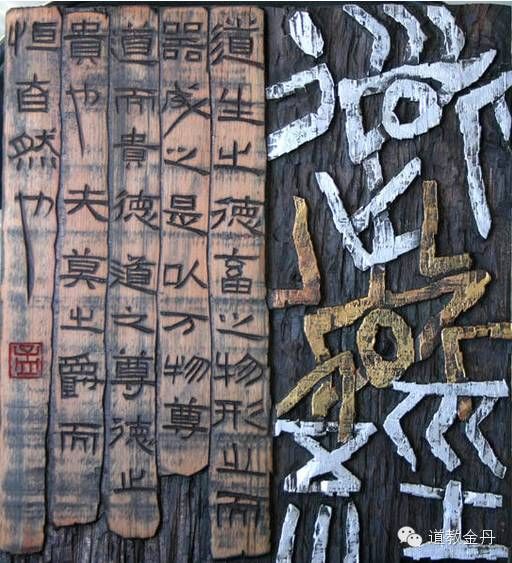 道生之德畜之物形之而
器成之是以万物尊
道而貴德道之尊德之
貴也夫莫之爵而
恒自然也
道教金丹